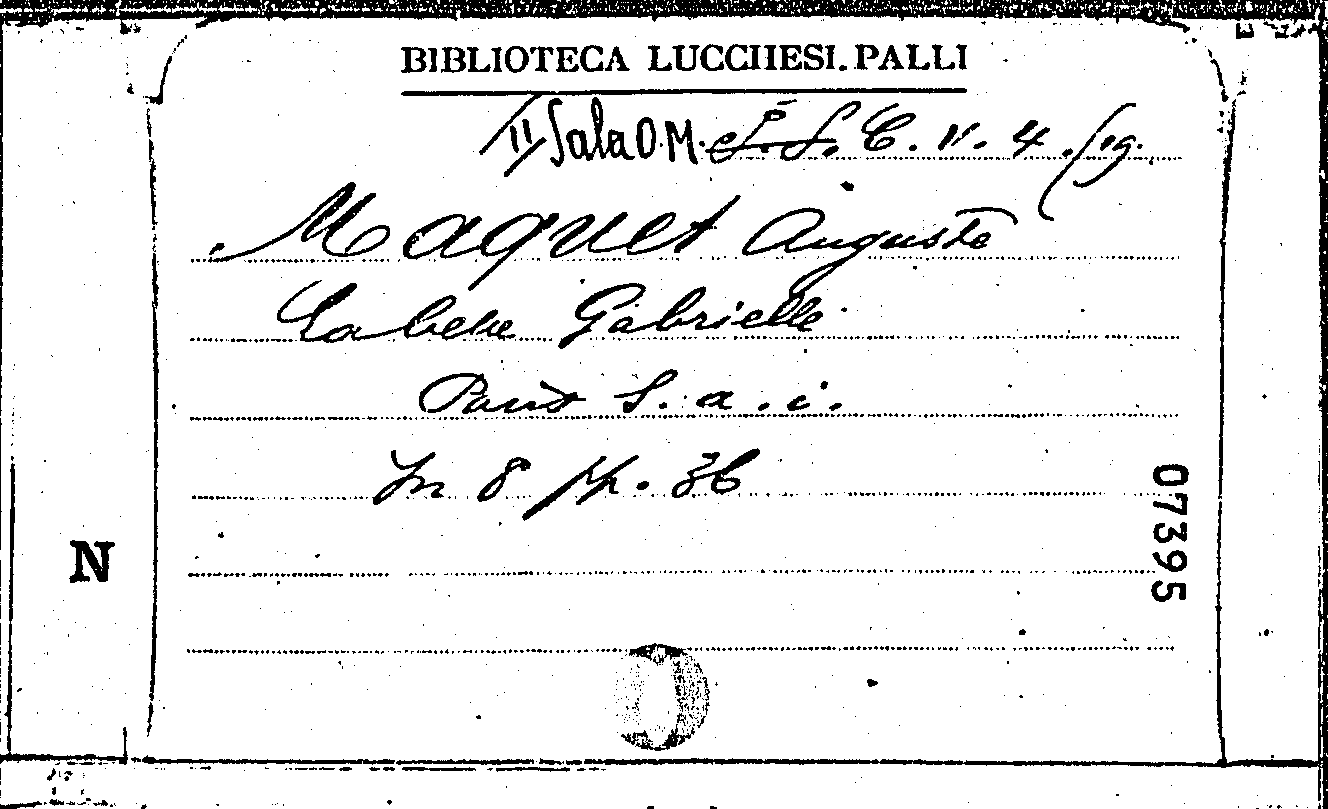 BIBLIOTECA LUCCHESI.PALLI
II Sala O.M. C. V. 4. (19.
Maquet Auguste
La belle Gabrielle
Paris S. a. i.
In 8 pp. 36
N
07395